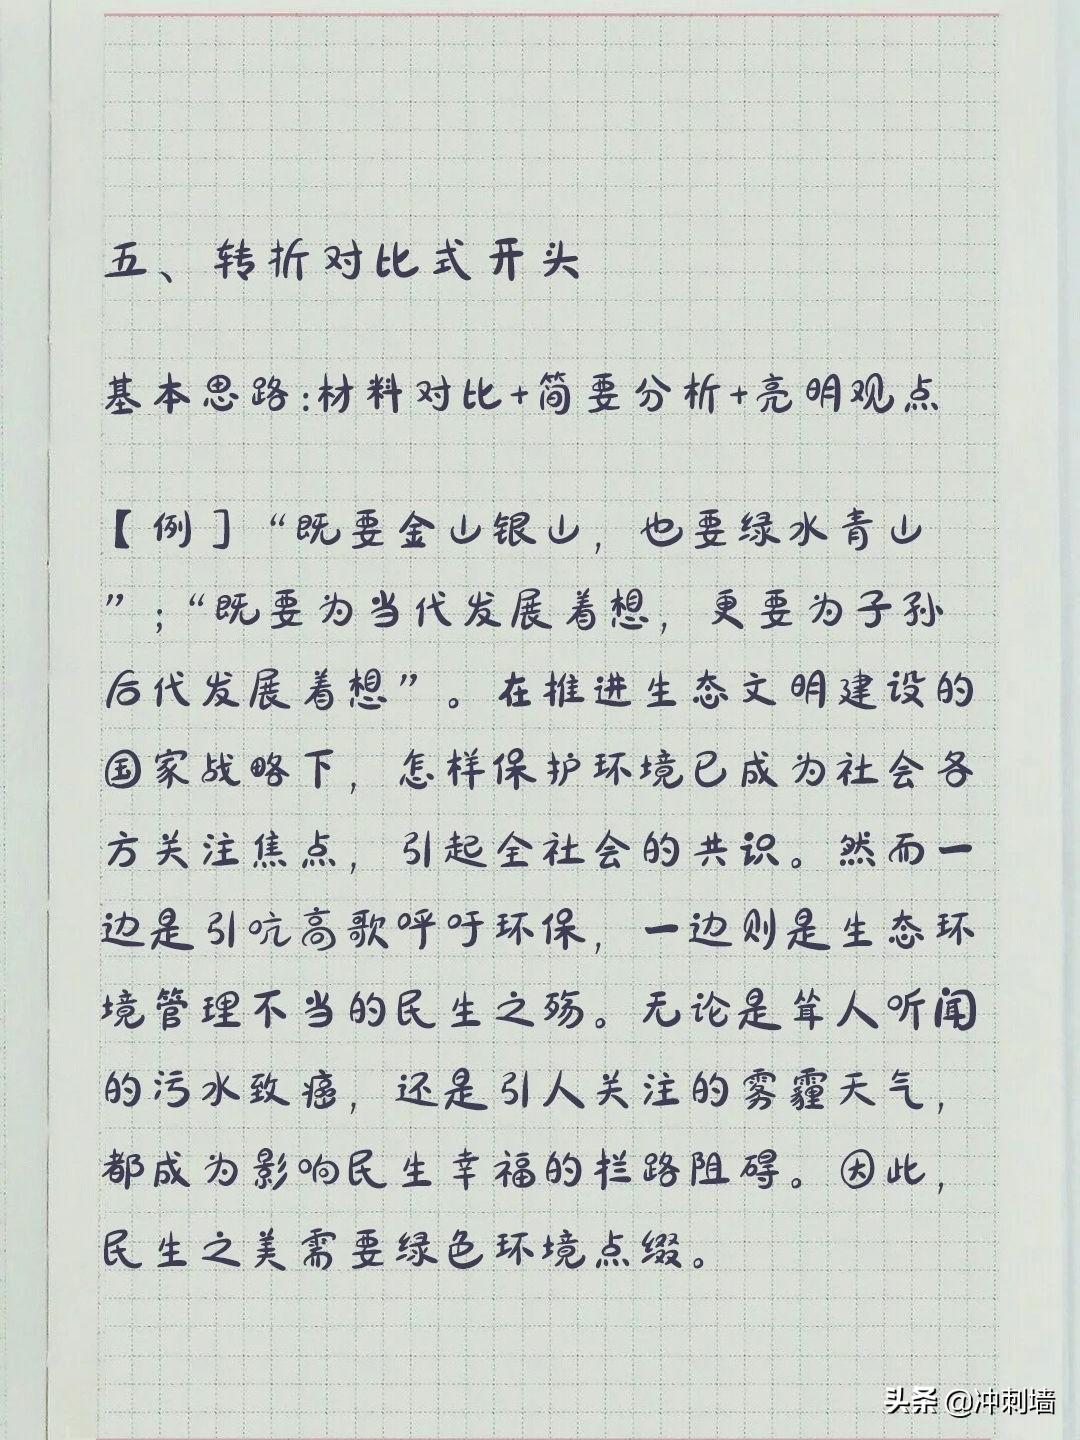 五、转折对比式开头
基本思路:材料对比+简要分析+亮明观点
【例】“既要金山银山，也要绿水青山
”；“既要为当代发展着想，更要为子孙
后代发展着想”。在推进生态文明建设的
国家战略下，怎样保护环境已成为社会各
方关注焦点，引起全社会的共识。然而一
边是引吭高歌呼吁环保，一边则是生态环
境管理不当的民生之殇。无论是耸人听闻
的污水致癌，还是引人关注的雾霾天气，
都成为影响民生幸福的拦路阻碍。因此，
民生之美需要绿色环境点缀。
头条 @冲刺墙